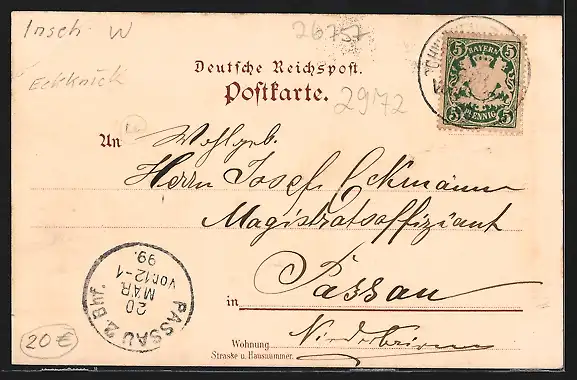 Insch W
26757
Eckknick
Deutsche Reichspost.
Postkarte.
2972
5 BAYERN 5
5 PFENNIG 5
An Wohlgeb.
Herrn Josef Eckmann
Magistratsoffiziant
in Passau
Niederbayern
Wohnung
Strasse u. Hausnummer.
PASSAU 2. Bhf.
20
MAR
VOR12-1
99.
20€